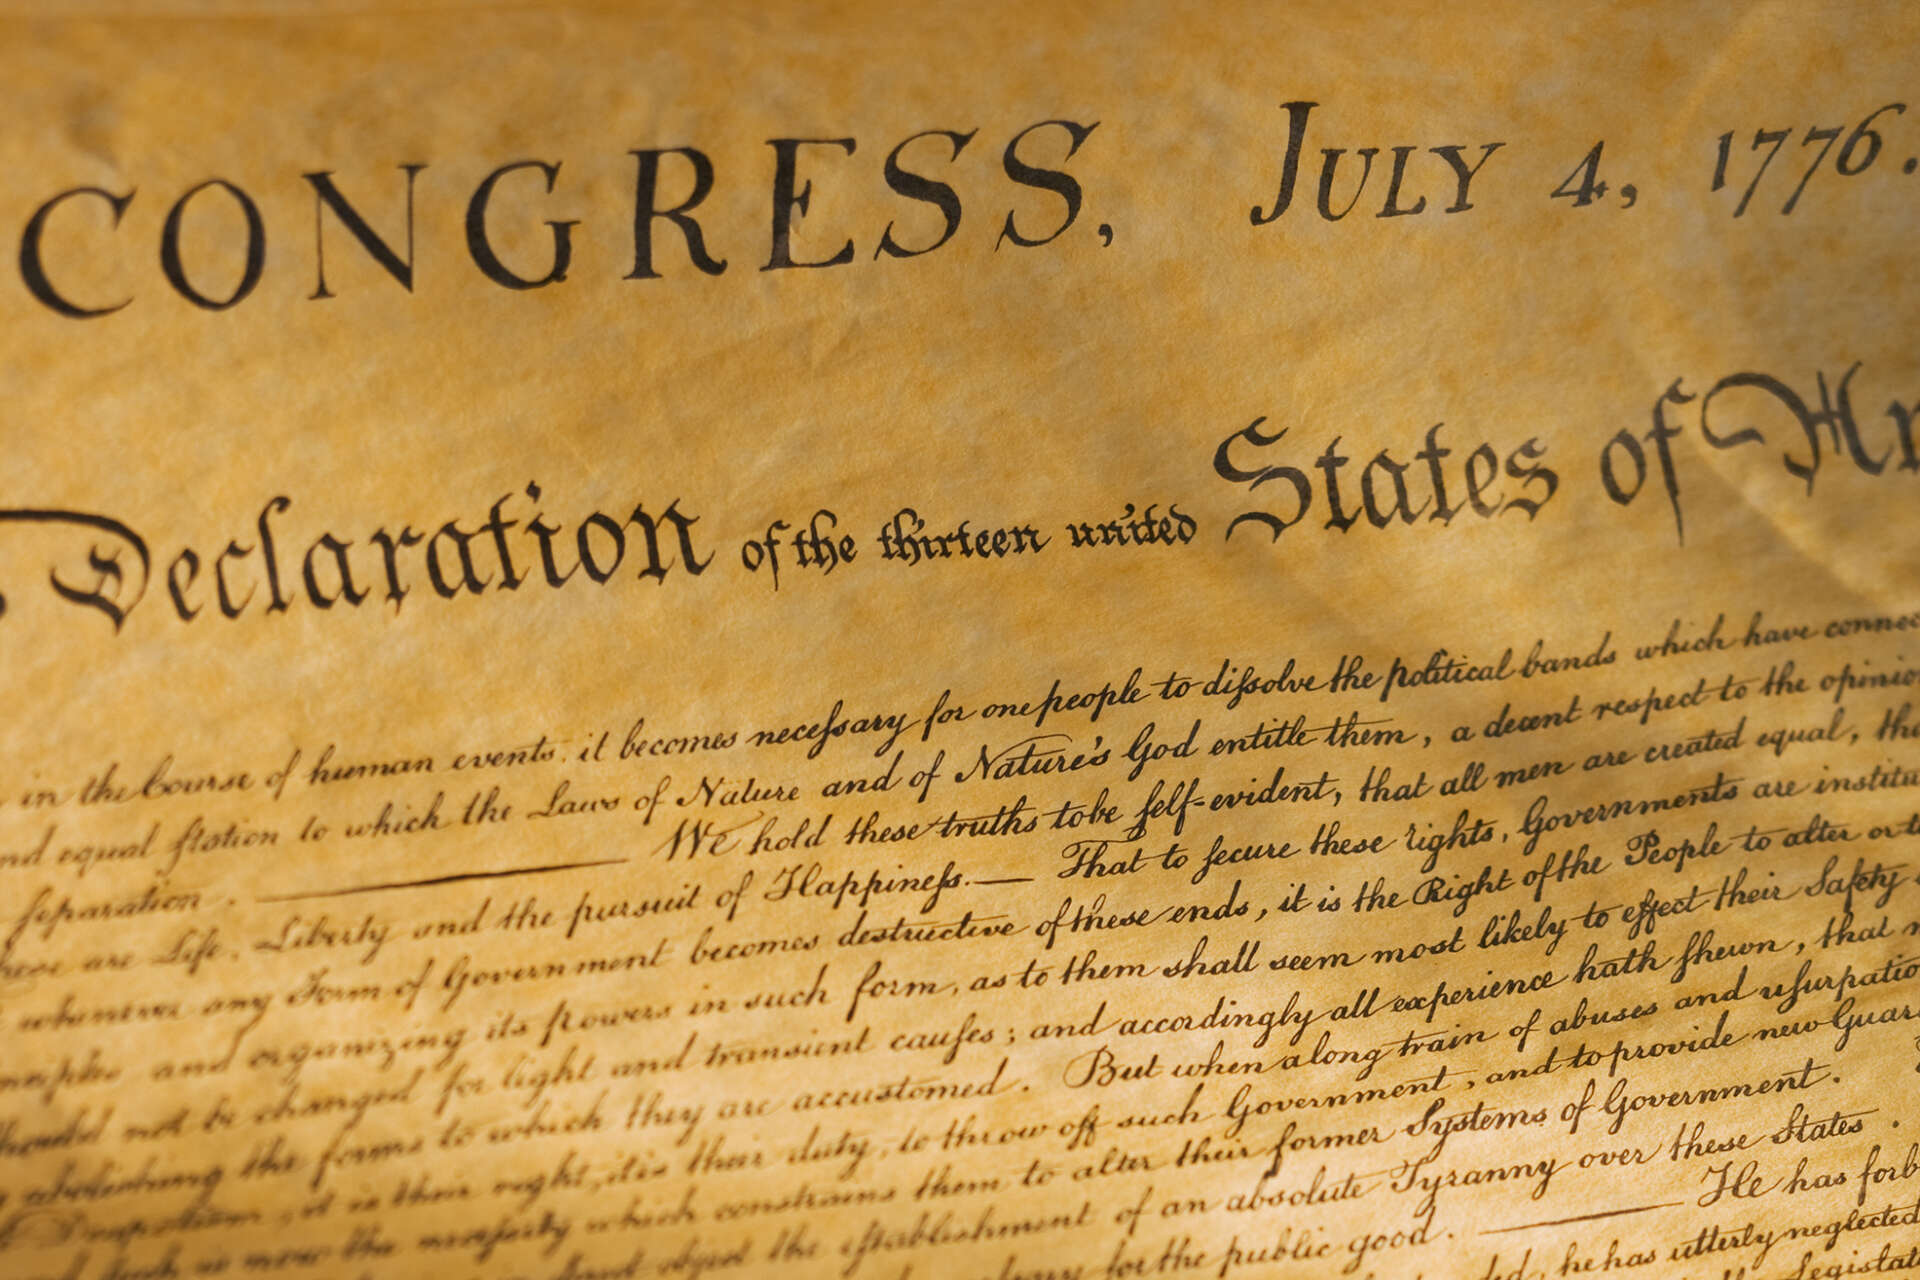 CONGRESS, JULY 4, 1776.
Declaration of the thirteen united States of Am
in the Course of human events, it becomes necessary for one people to dissolve the political bands which have connec
nd equal station to which the Laws of Nature and of Nature's God entitle them, a decent respect to the opinio
separation. We hold these truths to be self-evident, that all men are created equal, tha
these are Life, Liberty and the pursuit of Happiness. — That to secure these rights, Governments are institu
whenever any Form of Government becomes destructive of these ends, it is the Right of the People to alter or to
nciples and organizing its powers in such form, as to them shall seem most likely to effect their Safety
should not be changed for light and transient causes; and accordingly all experience hath shewn, that
abolishing the forms to which they are accustomed. But when a long train of abuses and usurpatio
Despotism, it is their right, it is their duty, to throw off such Government, and to provide new Guar
is now the necessity which constrains them to alter their former Systems of Government.
object the establishment of an absolute Tyranny over these States.
for the public good. He has forb
he has utterly neglected
Legislat